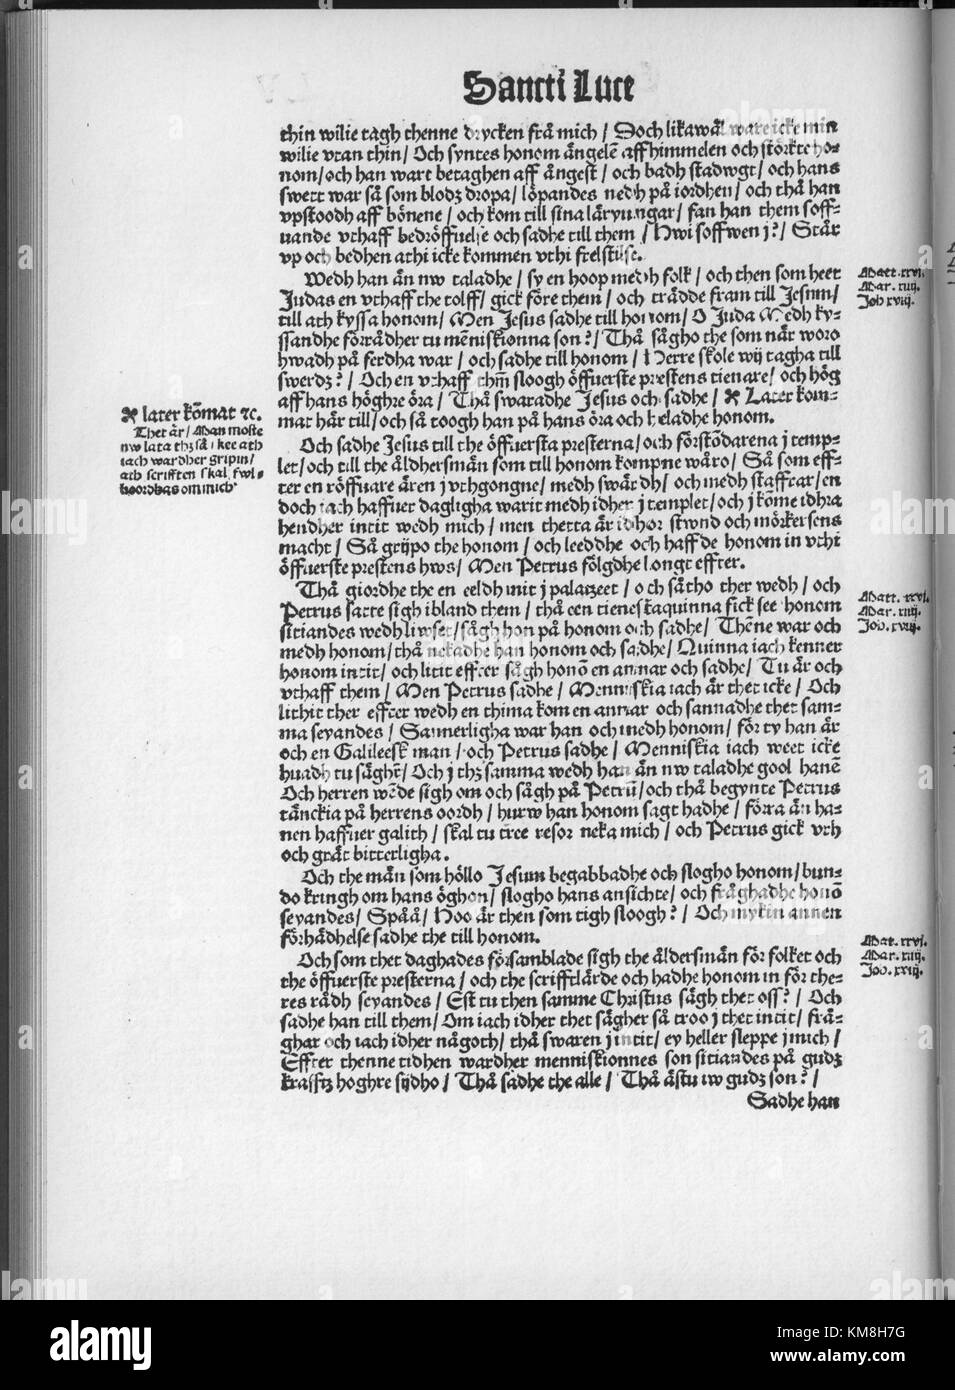 Sancti Luce
thin wilie tagh thenne drycken frå mich / Doch likawål ware icke min
wilie vtan thin / Och syntes honom ångelē aff himmelen och stőrkte ho⸗
nom / och han wart betaghen aff ångest / och badh stadwgt / och hans
swett war så som blodz dropa / lőpandes nedh på iordhen / och thå han
vpstoodh aff bőnene / och kom till sina låryungar / fan han them soff⸗
uande vthaff bedrőffuelse och sadhe till them / Hwi soffwen j? / Står
vp och bedhen athi icke kommen vthi frestilse.
Wedh han ån nw taladhe / sy en hoop medh folk / och then som heet
Judas en vthaff the tolff / gick főre them / och trådde fram till Jesum /
till ath kyssa honom / Men Jesus sadhe till honom / O Juda Medh ky⸗
ssandhe főrrådher tu mēniskionna son? / Thå sågho the som når woro
hwadh på ferdha war / och sadhe till honom / Herre skole wij tagha till
swerdz? / Och en vthaff thm̄ sloogh őffuerste prestens tienare / och hőg
aff hans hőghre őra / Thå swaradhe Jesus och sadhe / ✠ Later kom⸗
mat hår till / och så toogh han på hans őra och heladhe honom.
Och sadhe Jesus till the őffuersta presterna / och főrstődarena j temp⸗
let / och till the åldhersmån som till honom kompne wåro / Så som eff⸗
ter en rőffuare åren j vthgongne / medh swårdh / och medh staffrar / en
doch iach haffuer dagligha warit medh idher j templet / och j kőme idhra
hendher intit wedh mich / men thetta år idhor stwnd och mőrkersens
macht / Så grijpo the honom / och leeddhe och haffde honom in vthi
őffuerste prestens hws / Men Petrus főlgdhe longt effter.
Thå giordhe the en eeldh mit j palatzeet / och såtho ther wedh / och
Petrus satte sigh ibland them / thå een tienestaquinna fick see honom
sitiandes wedh liwset / sågh hon på honom och sadhe / Thēne war och
medh honom / thå nekadhe han honom och sadhe / Quinna iach kenner
honom intit / och litit effter sågh honō en annar och sadhe / Tu år och
vthaff them / Men Petrus sadhe / Menniskia iach år thet icke / Och
lithit ther effter wedh en thima kom en annar och sannadhe thet sam⸗
ma seyandes / Sannerligha war han och medh honom / főr ty han år
och en Galileesk man / och Petrus sadhe / Menniskia iach weet icke
huadh tu såght / Och j thz samma wedh han ån nw taladhe gool hanē
Och herren wēde sigh om och sågh på Petrū / och thå begynte Petrus
tånckia på herrens oordh / hurw han honom sagt hadhe / főrra ån ha⸗
nen haffuer galith / skal tu tree resor neka mich / och Petrus gick vth
och gråt bitterligha.
Och the mån som hőllo Jesum begabbadhe och slogho honom / bun⸗
do kringh om hans őghon / slogho hans ansichte / och fråghadhe honō
seyandes / Spåå / Hoo år then som tigh sloogh? / Och mykin annen
főrhådhelse sadhe the till honom.
Och som thet daghades főrsamblade sigh the åldersmån főr folket och
the őffuerste presterna / och the scrifftlårde och hadhe honom in főr the⸗
res rådh seyandes / Est tu then samme Christus sågh thet oss? / Och
sadhe han till them / Om iach idher thet sågher så troo j thet intit / frå⸗
ghar och iach idher någoth / thå swaren j intit / ey heller sleppe j mich /
Effter thenne tidhen wardher menniskionnes son sitiandes på gudz
krafftz hoghre sijdho / Thå sadhe the alle / Thå åstu iw gudz son? /
Sadhe han
✠ later kōmat ⁊c.
Thet år / Man moste
nw lata thz så skee ath
iach wardher gripin /
ath scrifften skal fwl⸗
boordhas om mich
Matt. xxvj.
Mar. xiiij.
Joh xviij.
Matt. xxvj.
Mar. xiiij.
Joh. xviij.
Mat. xxvj.
Mar. xiiij.
Joh. xviij.
alamy
KM8H7G
www.alamy.com